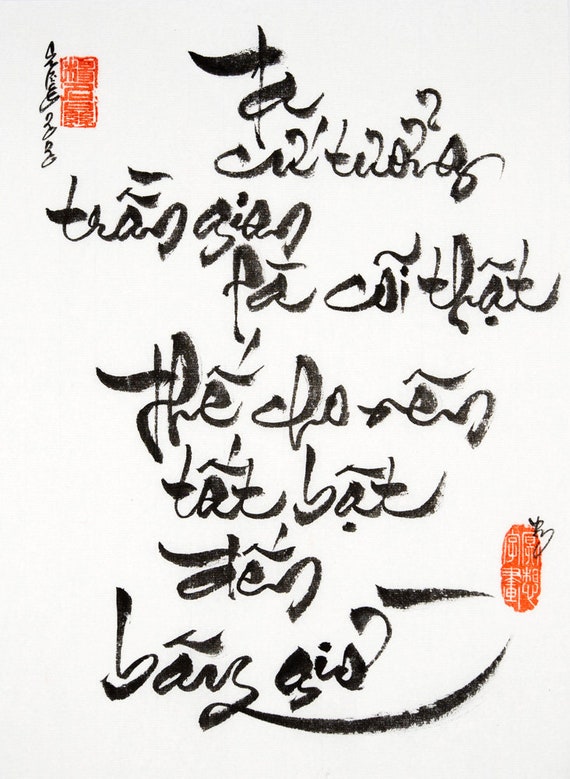 Ta
cứ tưởng
trần gian
là cõi thật
thế cho nên
tất bật
đến
bây giờ